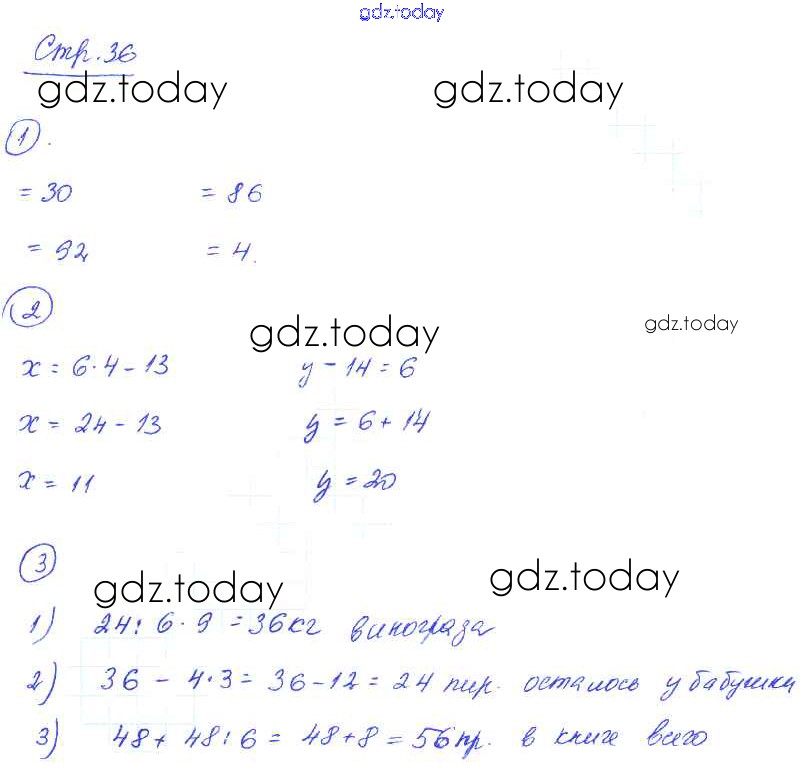 gdz.today
Стр. 36
gdz.today gdz.today
1.
= 30 = 86
= 92 = 4.
2
gdz.today gdz.today
x = 6·4 - 13 y - 14 = 6
x = 24 - 13 y = 6 + 14
x = 11 y = 20
3
gdz.today gdz.today
1) 24 : 6 · 9 = 36 кг винограда
2) 36 - 4·3 = 36 - 12 = 24 пир. осталось у бабушки
3) 48 + 48 : 6 = 48 + 8 = 56 пр. в книге всего